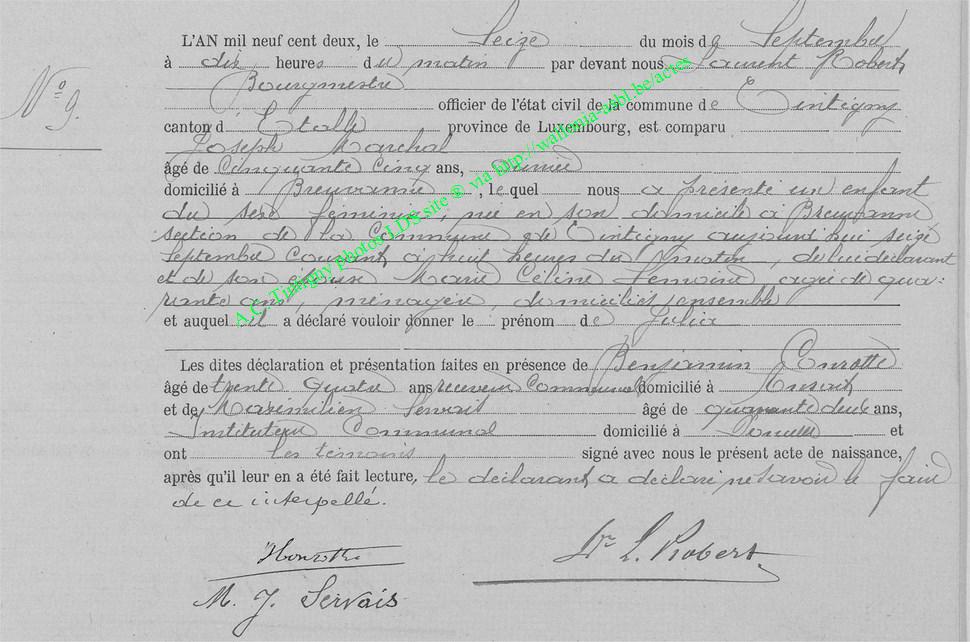 L'AN mil neuf cent deux, le Seize du mois de Septembre
à dix heures du matin par devant nous Laurent Robert,
Bourgmestre
N° 9.
officier de l'état civil de la commune de Tintigny
canton d'Etalle province de Luxembourg, est comparu
Joseph Marchal
âgé de Cinquante Cinq ans,
domicilié à Breuvanne, lequel nous a présenté un enfant
du sexe feminin, née en son domicile à Breuvanne
section de la Commune de Tintigny aujourd'hui seize
Septembre Courant, à huit heures du matin de lui déclarant
et de son épouse Marie Céline Lemoine agée de qua-
rante ans, ménagère, domiciliés ensemble
et auquel il a déclaré vouloir donner le prénom de Julia
Les dites déclaration et présentation faites en présence de Benjamin
âgé de trente quatre ans receveur Communal domicilié à
et de Maximilien Servais âgé de quarante deux ans,
Instituteur Communal domicilié à et
ont les témoins signé avec nous le présent acte de naissance,
après qu'il leur en a été fait lecture, le déclarant a déclaré ne savoir le faire
de ce interpellé.
Dr L. Robert
M. J. Servais
A.C. Tintigny photos LDS site ® via http://wallonia-asbl.be/actes